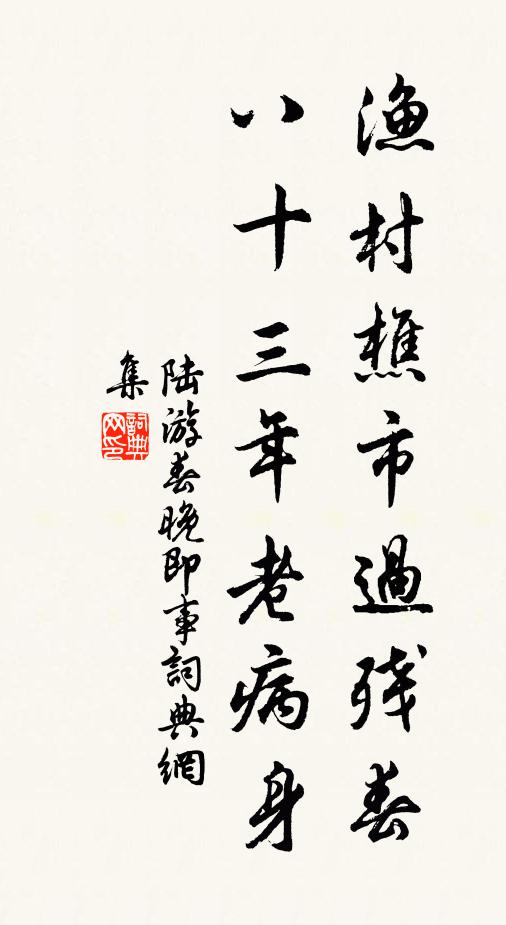 渔村樵市過残春
八十三年老病身
陆游春晚即事詞典網
集
詞典網印